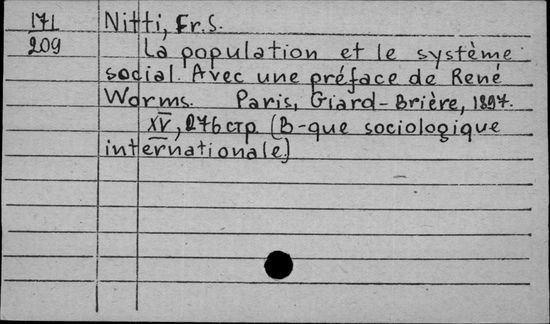 171 Nitti, Fr.S.
209 La population et le système
social. Avec une préface de René
Worms. Paris, Giard-Brière, 1897.
XV, 276 стр. (B-que sociologique
internationale)